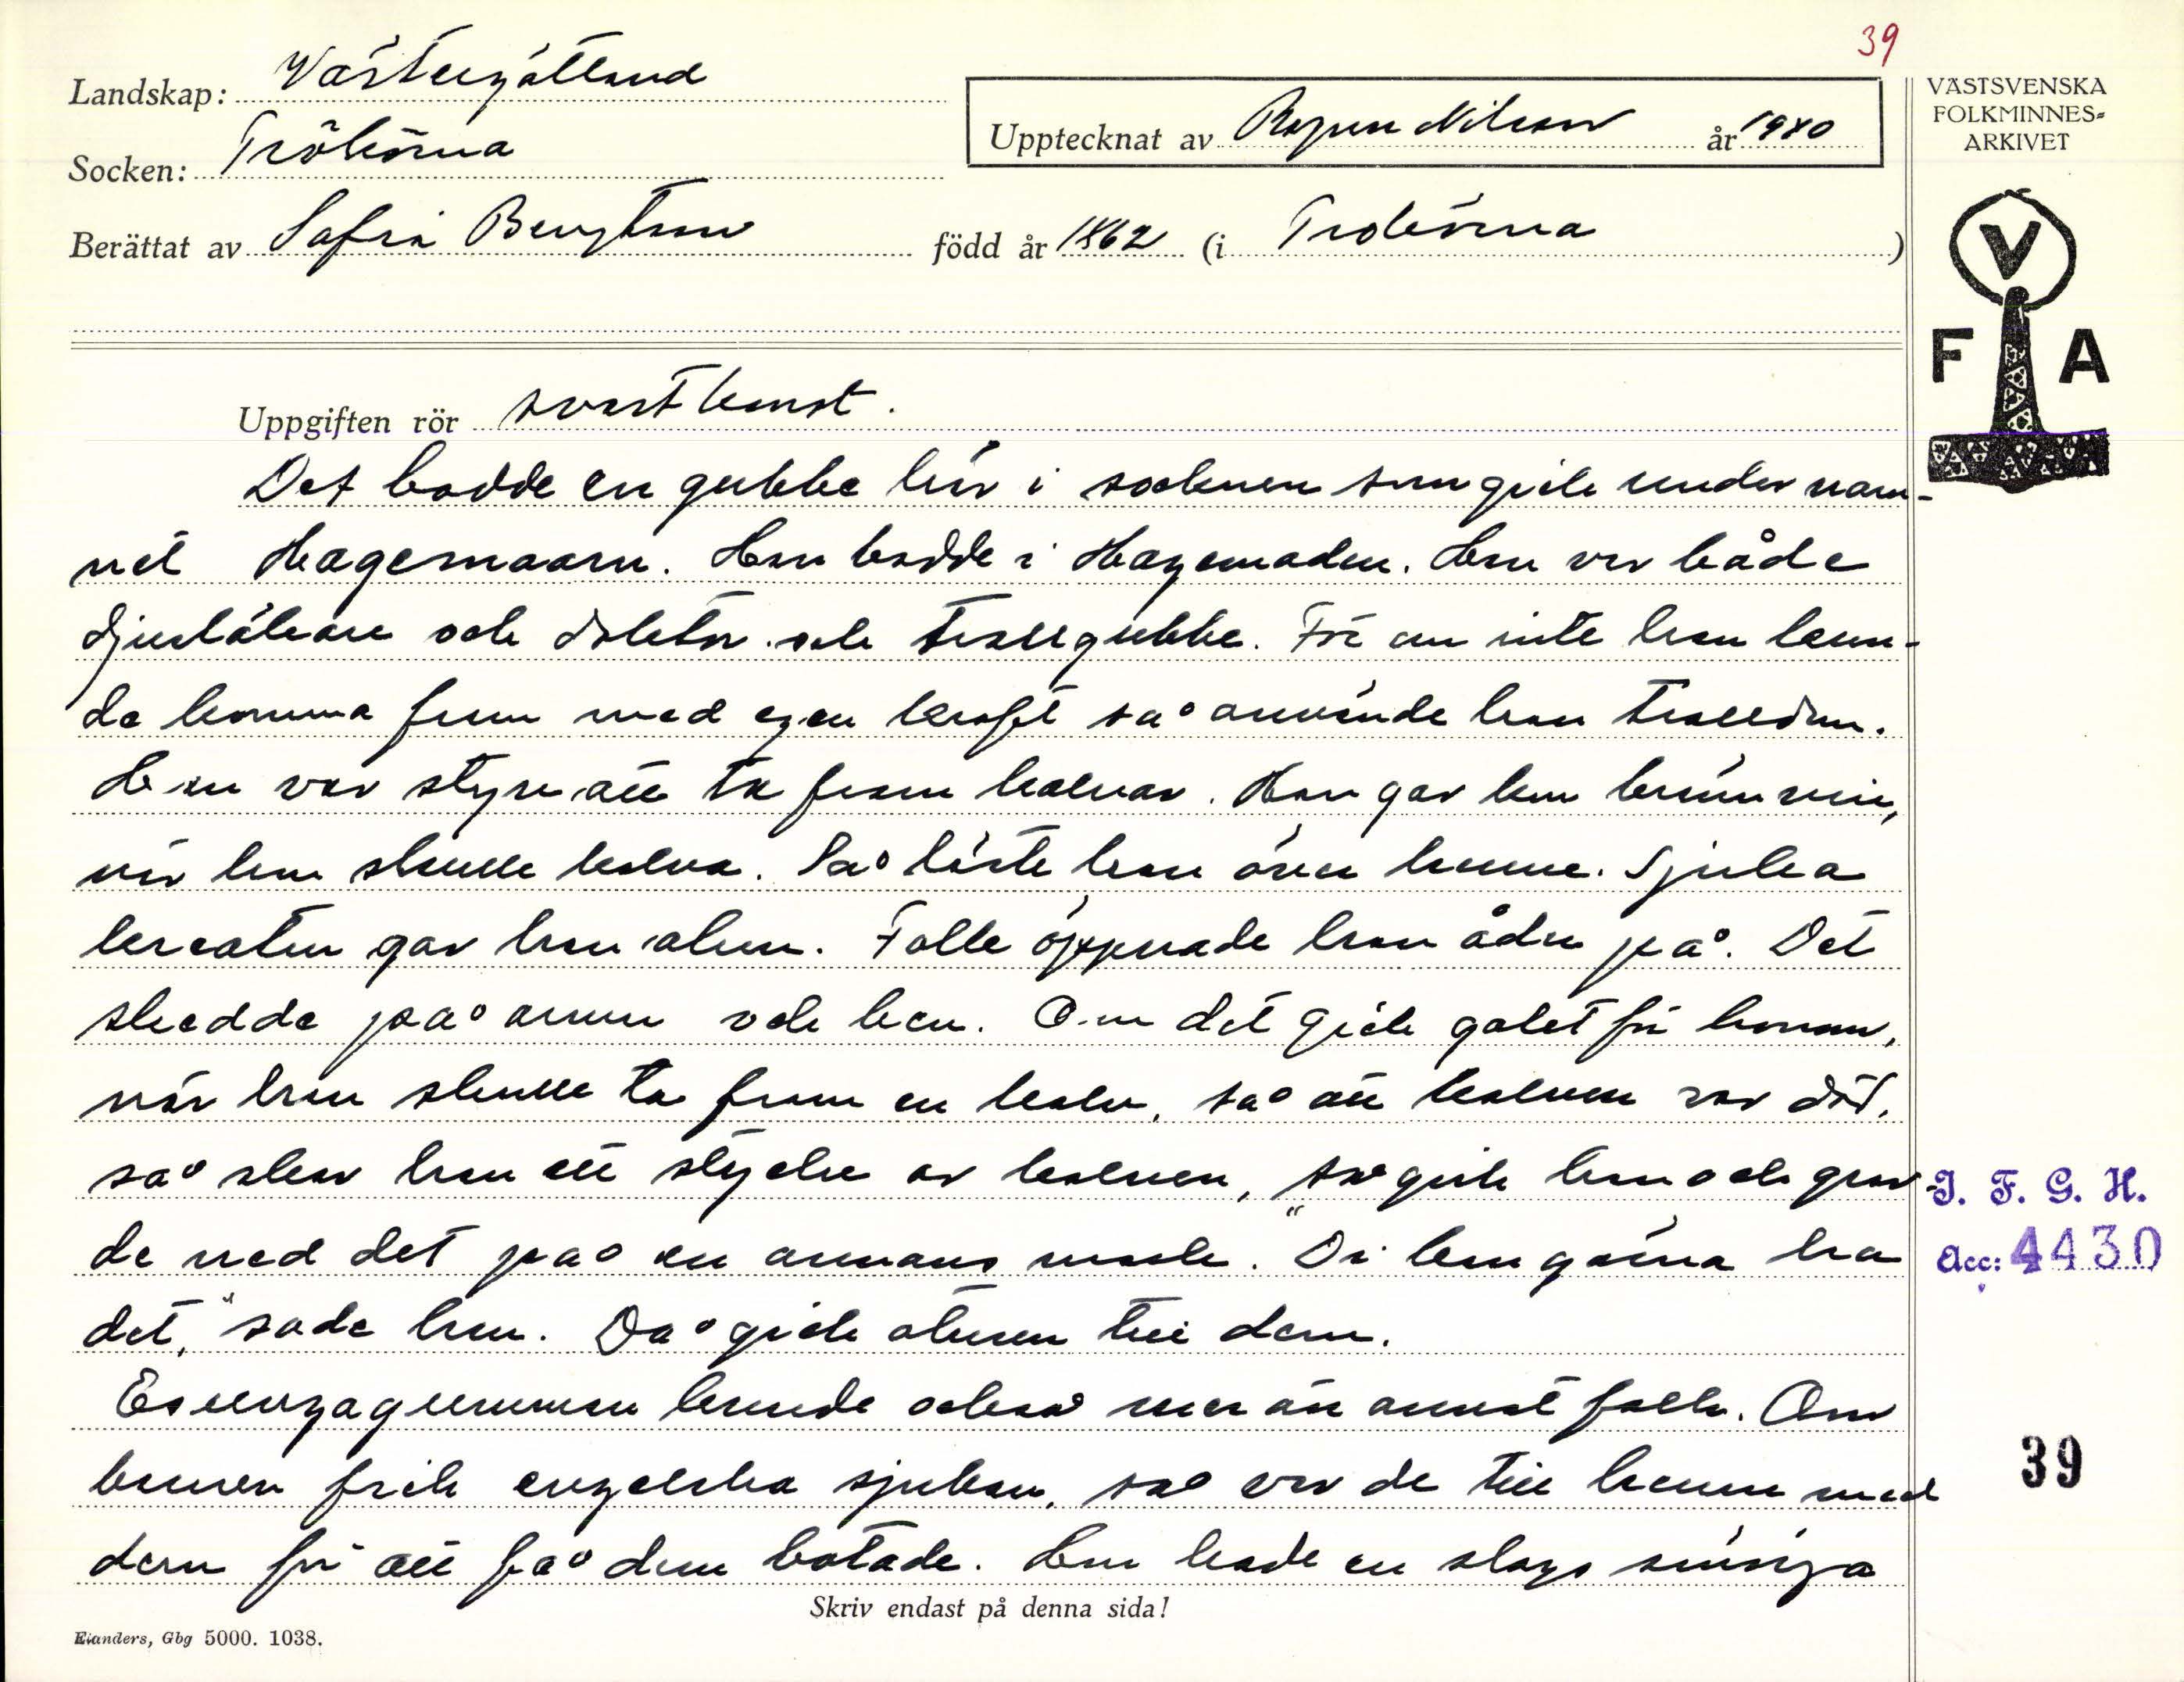 39
Landskap: Västergötland
Socken: Trökörna
Upptecknat av Ragnar Nilsson år 1940
Berättat av Sofia Bengtsson född år 1862 (i Trökörna)
VÄSTSVENSKA
FOLKMINNES=
ARKIVET
V
F A
Uppgiften rör svartkonst.
Det bodde en gubbe här i socknen som gick under nam-
net Hagemaarn. Han bodde i Hagemaden. Han var både
djurläkare och doktor och trollgubbe. För om inte han kun-
de komma fram med egen kraft så använde han trolldom.
Han var styv att ta fram kalvar. Han gav kon brännvin,
när hon skulle kalva. Så läste han över henne. Sjuka
kreatur gav han alun. Folk öppnade han ådra på. Det
skedde på armen och ben. Om det gick galet för honom,
när han skulle ta fram en kalv, så att kalven var död,
så skar han ett stycke av kalven, så gick han och grav-
de ned det på en annans mark. "Di kan gärna ha
det," sade han. Då gick oturen till dem.
kunde också mer än annat folk. Om
barnen fick engelska sjukan, så var de till henne med
dem för att få dem botade. Hon hade en slags
Skriv endast på denna sida!
Elanders, Gbg 5000. 1038.
I. F. G. H.
Acc: 4430
39